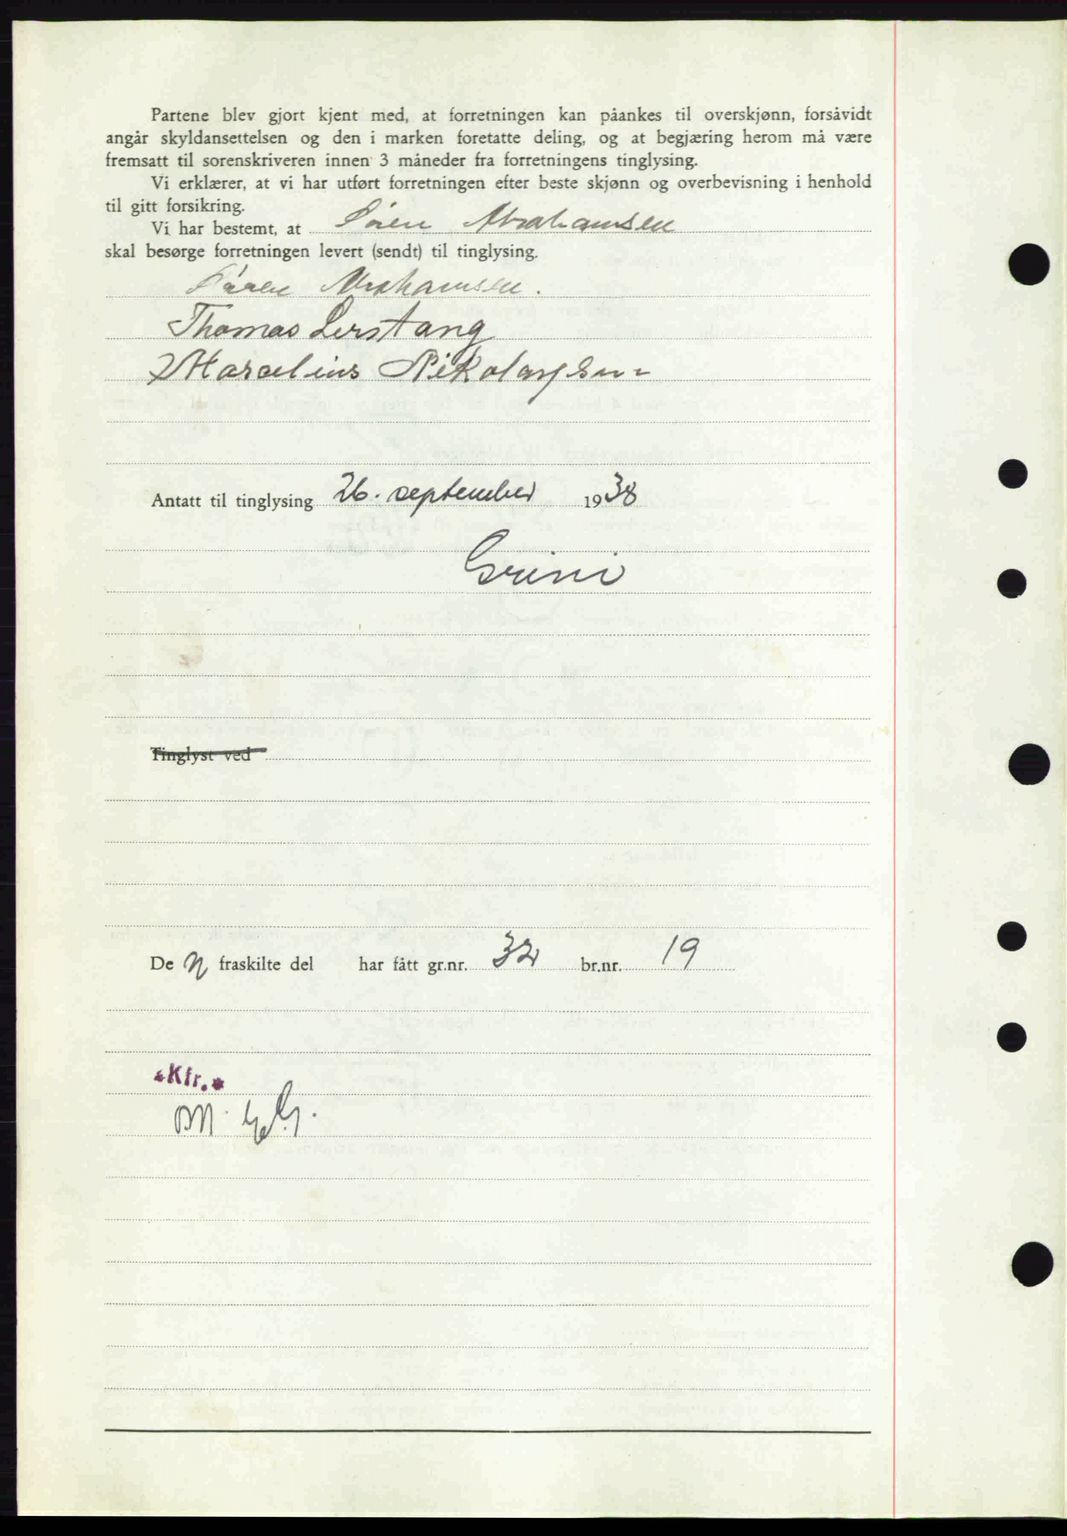 Partene blev gjort kjent med, at forretningen kan påankes til overskjønn, forsåvidt
angår skyldansettelsen og den i marken foretatte deling, og at begjæring herom må være
fremsatt til sorenskriveren innen 3 måneder fra forretningens tinglysing.
Vi erklærer, at vi har utført forretningen efter beste skjønn og overbevisning i henhold
til gitt forsikring.
Vi har bestemt, at Søren Abrahamsen
skal besørge forretningen levert (sendt) til tinglysing.
Søren Abrahamsen.
Thomas Lerstang
Marcelius Nikolaysen
Antatt til tinglysing 26. september 1938
Grini
Tinglyst ved
De n fraskilte del har fått gr.nr. 32 br.nr. 19
*Kfr.*